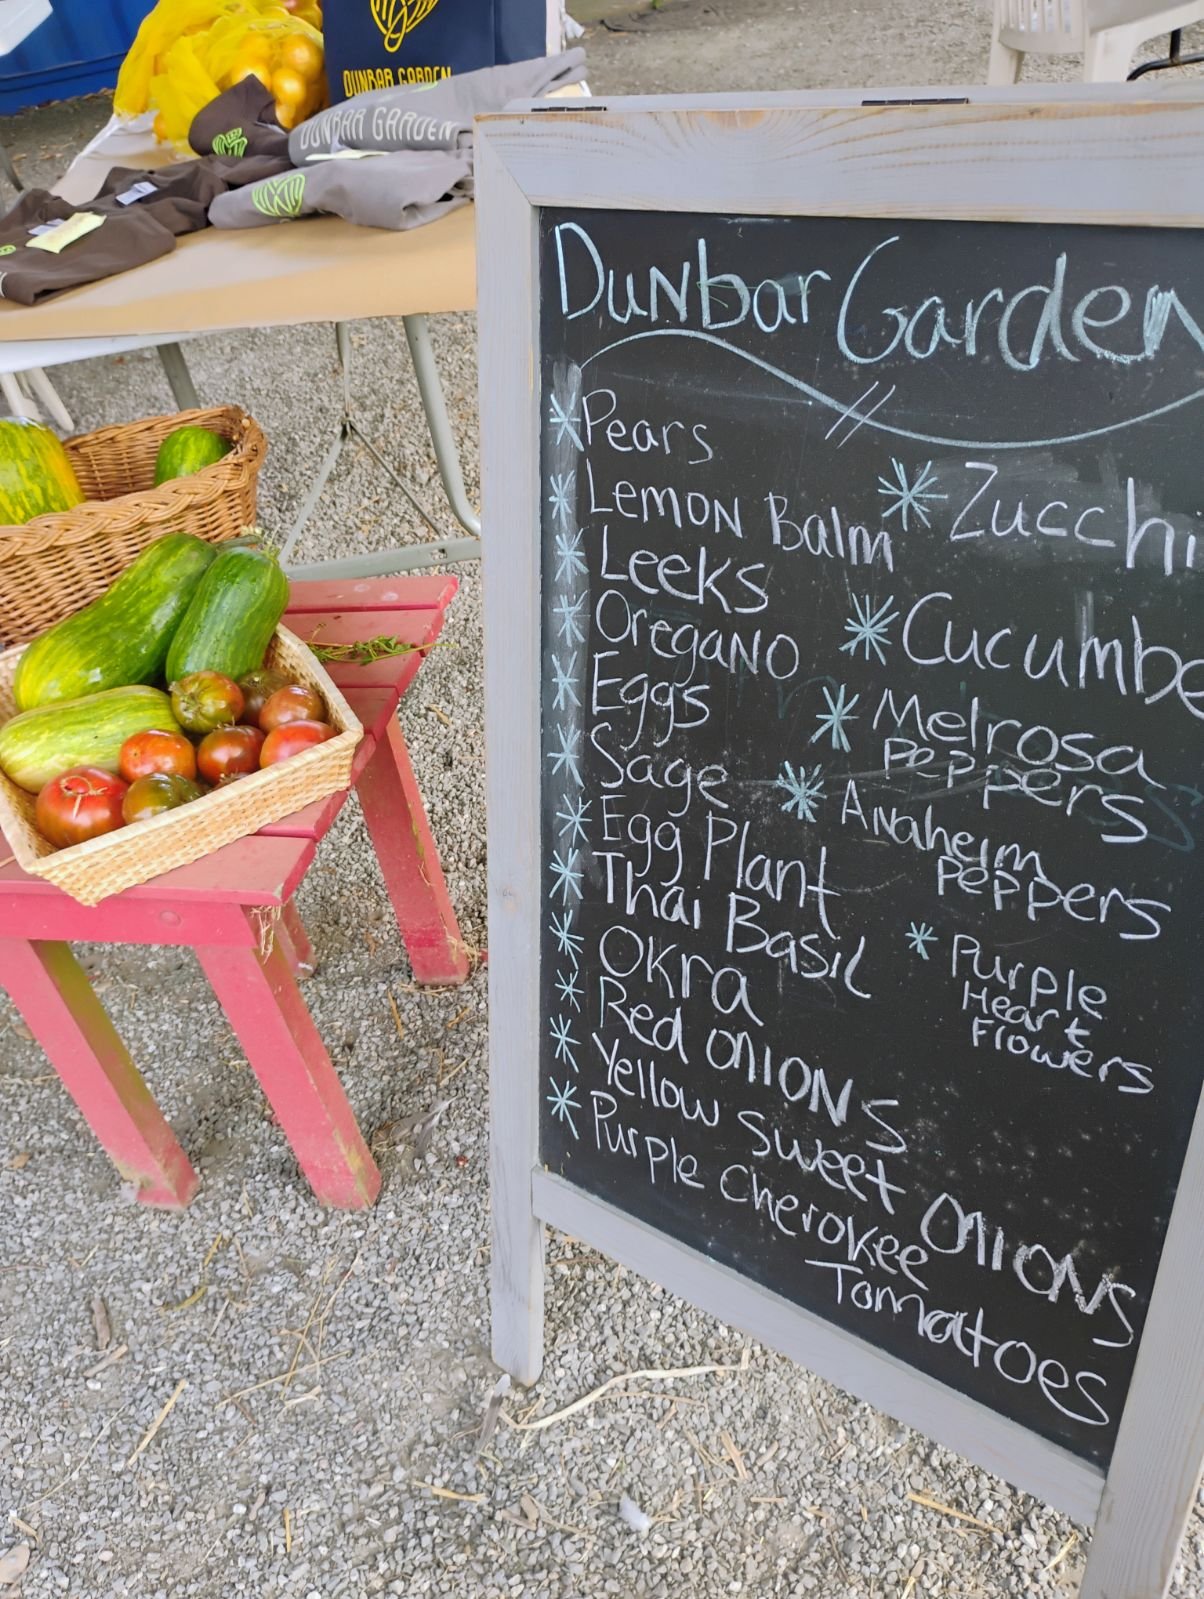 DUNBAR GARDEN
DUNBAR GARDEN
Dunbar Garden
Pears
Lemon Balm
Leeks
Oregano
Eggs
Sage
Egg Plant
Thai Basil
Okra
Red onions
Yellow Sweet Onions
Purple Cherokee
Tomatoes
Zucchi
Cucumbe
Melrosa
Peppers
Anaheim
Peppers
Purple
Heart
Flowers